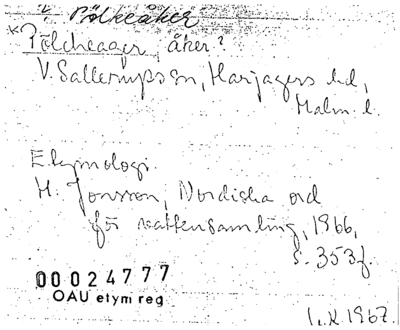 Pölkeåker
*Pölcheager, åker?
V. Sallerups sn, Harjagers hd,
Malm. l.
Etymologi.
H. Jonsson, Nordiska ord
för vattensamling, 1966,
s. 353f.
00024777
OAU etym reg
1967.